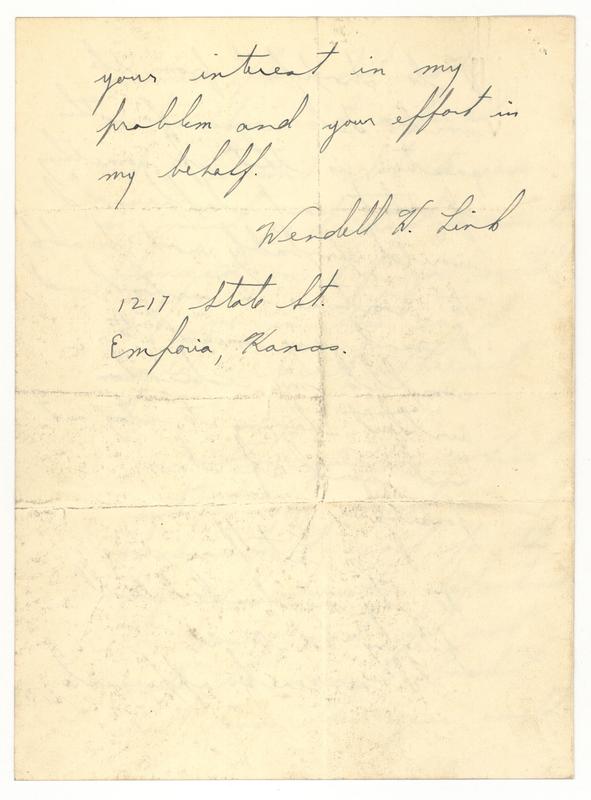 your interest in my
problem and your effort in
my behalf.
Wendell H. Link
1217 State St.
Emporia, Kansas.